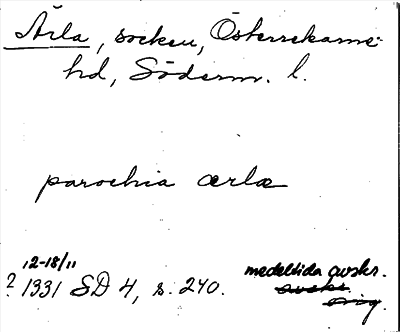 Ärla, socken, Österrekarne
hd, Söderm. l.
parochia ærlæ
12-18/11
? 1331 SD 4, s. 240. medeltida avskr.
avskr.
orig.